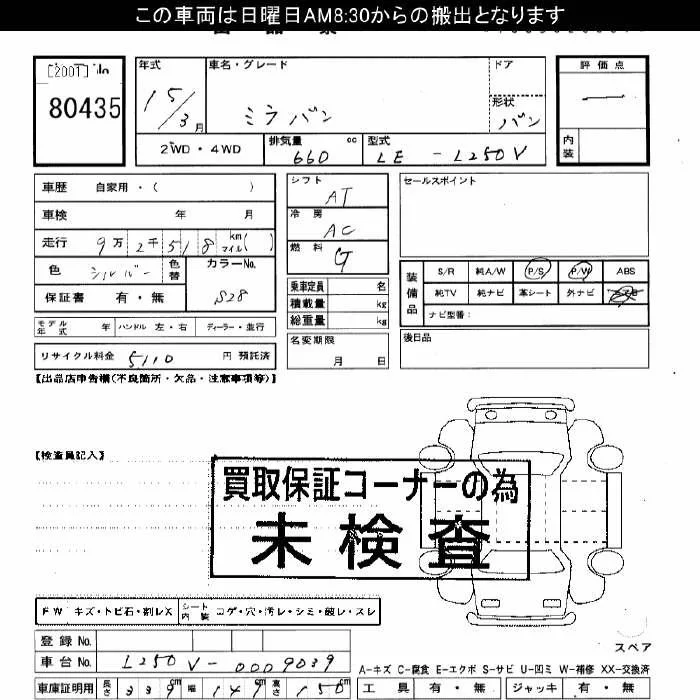 この車両は日曜日AM8:30からの搬出となります
[2007] No
80435
年式 車名・グレード ドア 評価点
15/3月 ミラバン 形状 バン —
2WD・4WD 排気量 660 cc 型式 LE - L250V 内装
車歴 自家用・( )
車検 年 月
走行 9万2千518 km マイル( )
色 シルバー 色替 カラーNo. S28
保証書 有・無
モデル年式 年 ハンドル 左・右 ディーラー・並行
リサイクル料金 5110 円 預託済
シフト AT
冷房 AC
燃料 G
乗車定員 名
積載量 kg
総重量 kg
名変期限 月 日
セールスポイント
装備品 S/R 純A/W P/S P/W ABS
純TV 純ナビ 革シート 外ナビ
ナビ型番:
後日品
【出品店申告欄(不良箇所・欠品・注意事項等)】
【検査員記入】
買取保証コーナーの為
未検査
FW キズ・トビ石・割レX シート内装 コゲ・穴・汚レ・シミ・破レ・スレ
登録No.
車台No. L250V-0009039
スペア
A-キズ C-腐食 E-エクボ S-サビ U-凹ミ W-補修 XX-交換済
車庫証明用 長さ 339cm 幅 147cm 高さ 150cm 工具 有・無 ジャッキ 有・無